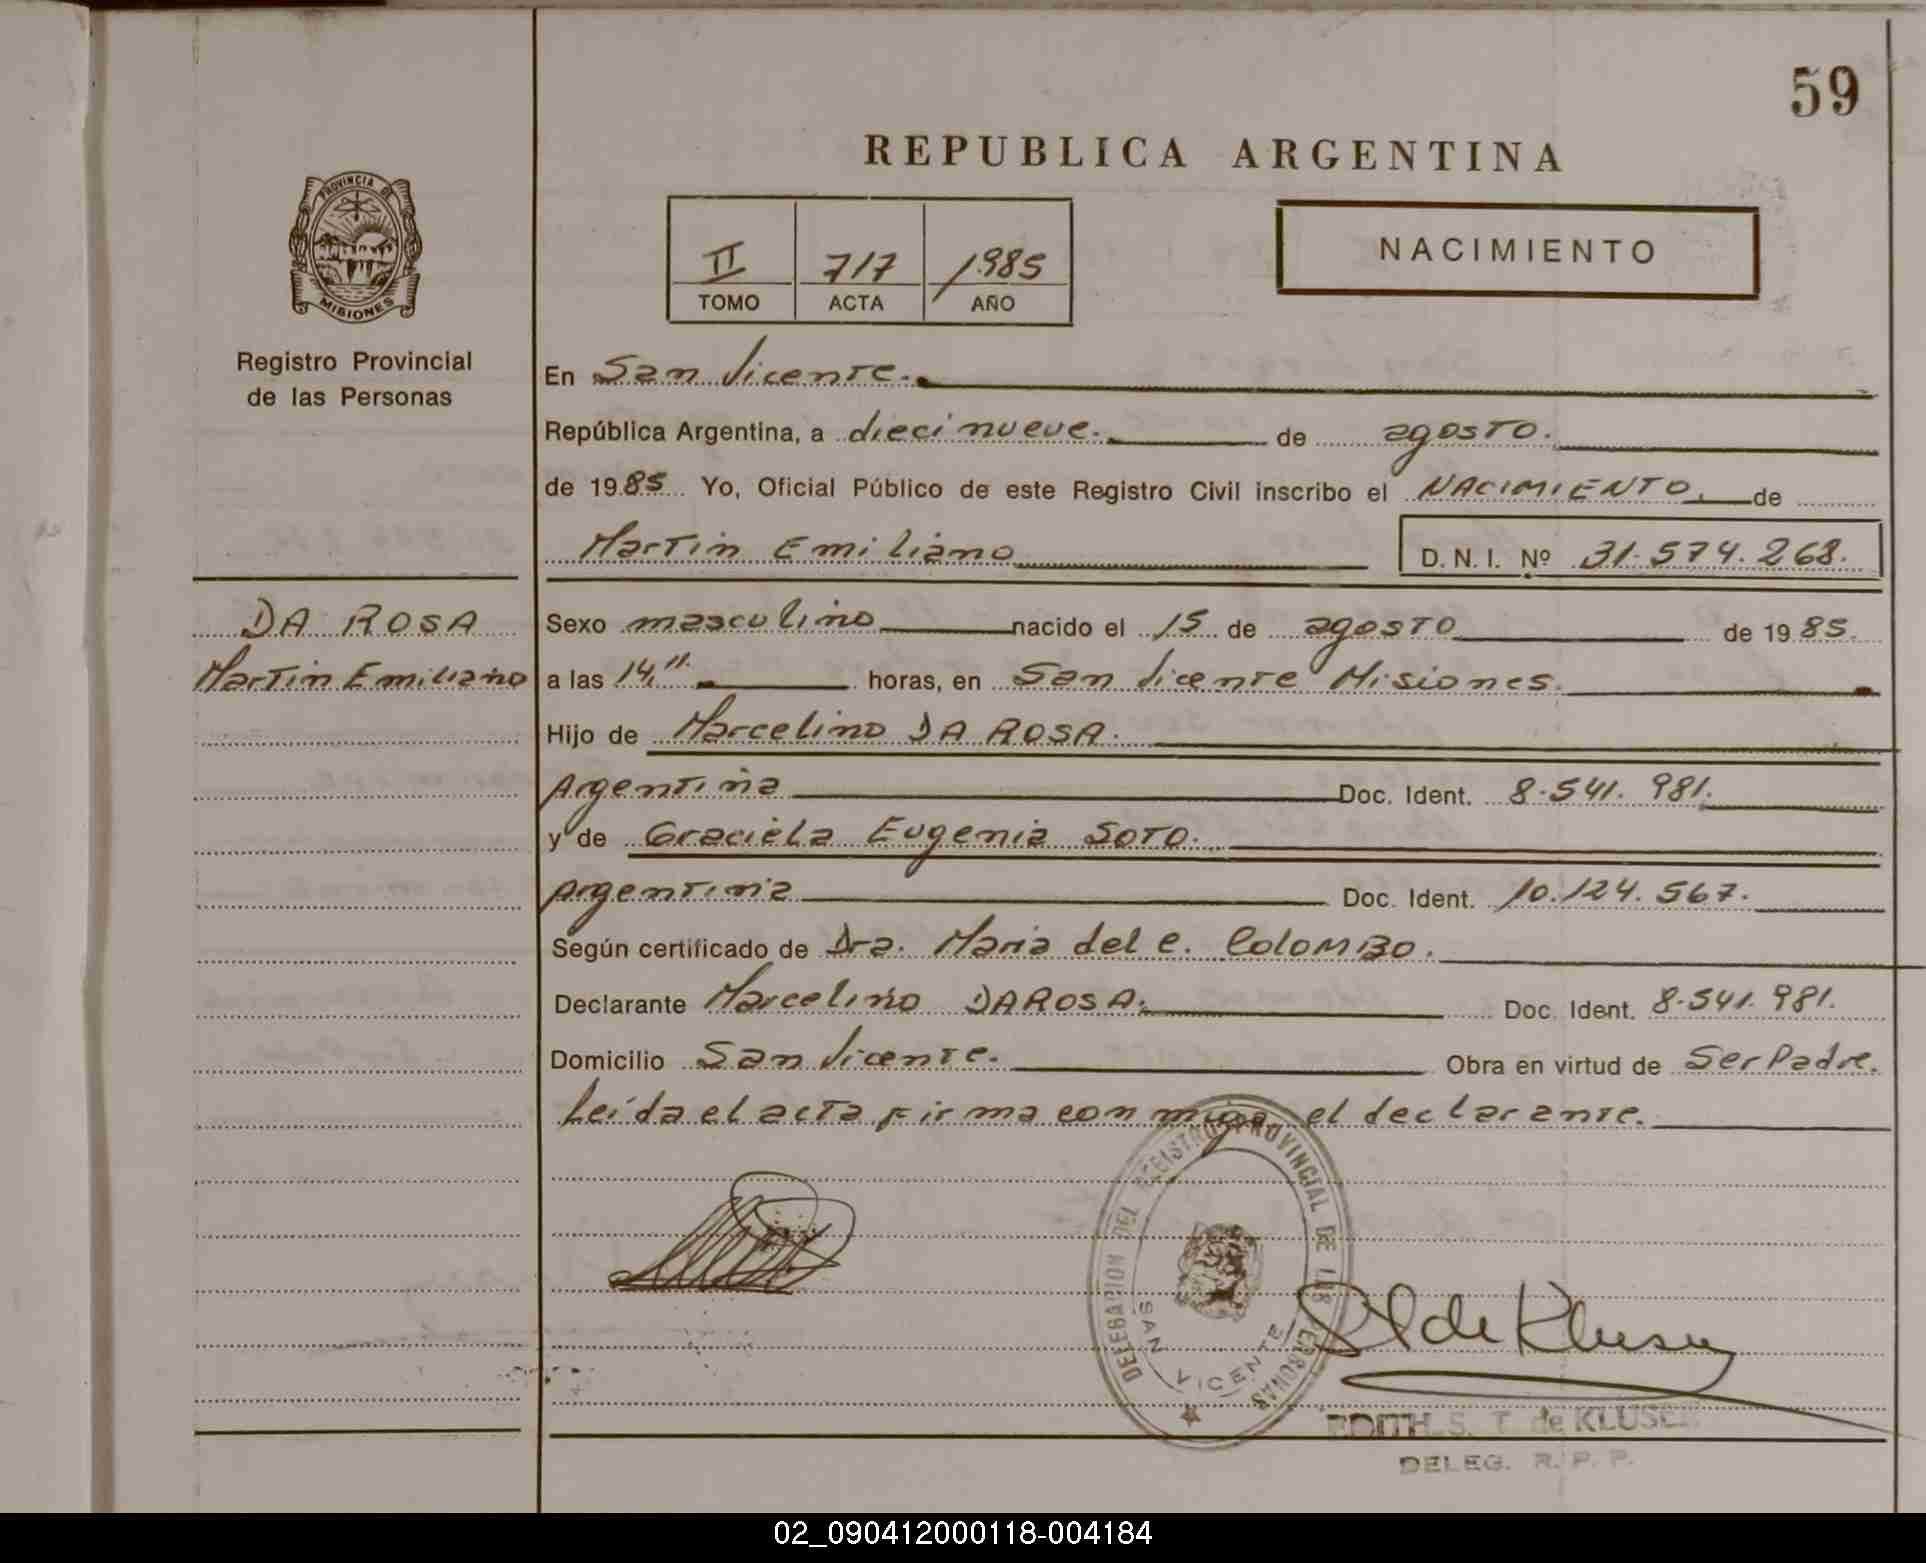 59
REPUBLICA ARGENTINA
PROVINCIA DE
MISIONES
Registro Provincial
de las Personas
II 717 1985
TOMO ACTA AÑO
NACIMIENTO
En San Vicente.
República Argentina, a dieci nueve. de agosto.
de 1985 Yo, Oficial Público de este Registro Civil inscribo el NACIMIENTO. de
Martin Emiliano D. N. I. Nº 31.574.268.
DA ROSA
Martin Emiliano
Sexo masculino nacido el 15 de agosto de 1985.
a las 14,11. horas, en San Vicente Misiones.
Hijo de Marcelino DA ROSA.
Argentina Doc. Ident. 8.541.981.
y de Graciela Eugenia SOTO.
Argentina Doc. Ident. 10.124.567.
Según certificado de Dra. Maria del C. COLOMBO.
Declarante Marcelino DA ROSA. Doc. Ident. 8.541.981.
Domicilio San Vicente. Obra en virtud de Ser Padre.
Leída el acta firma con migo el declarante.
DELEGACION DEL REGISTRO PROVINCIAL DE LAS PERSONAS
SAN VICENTE
de Klusen
EDITH S. T. de KLUSEN
DELEG. R. P. P.
02_090412000118-004184